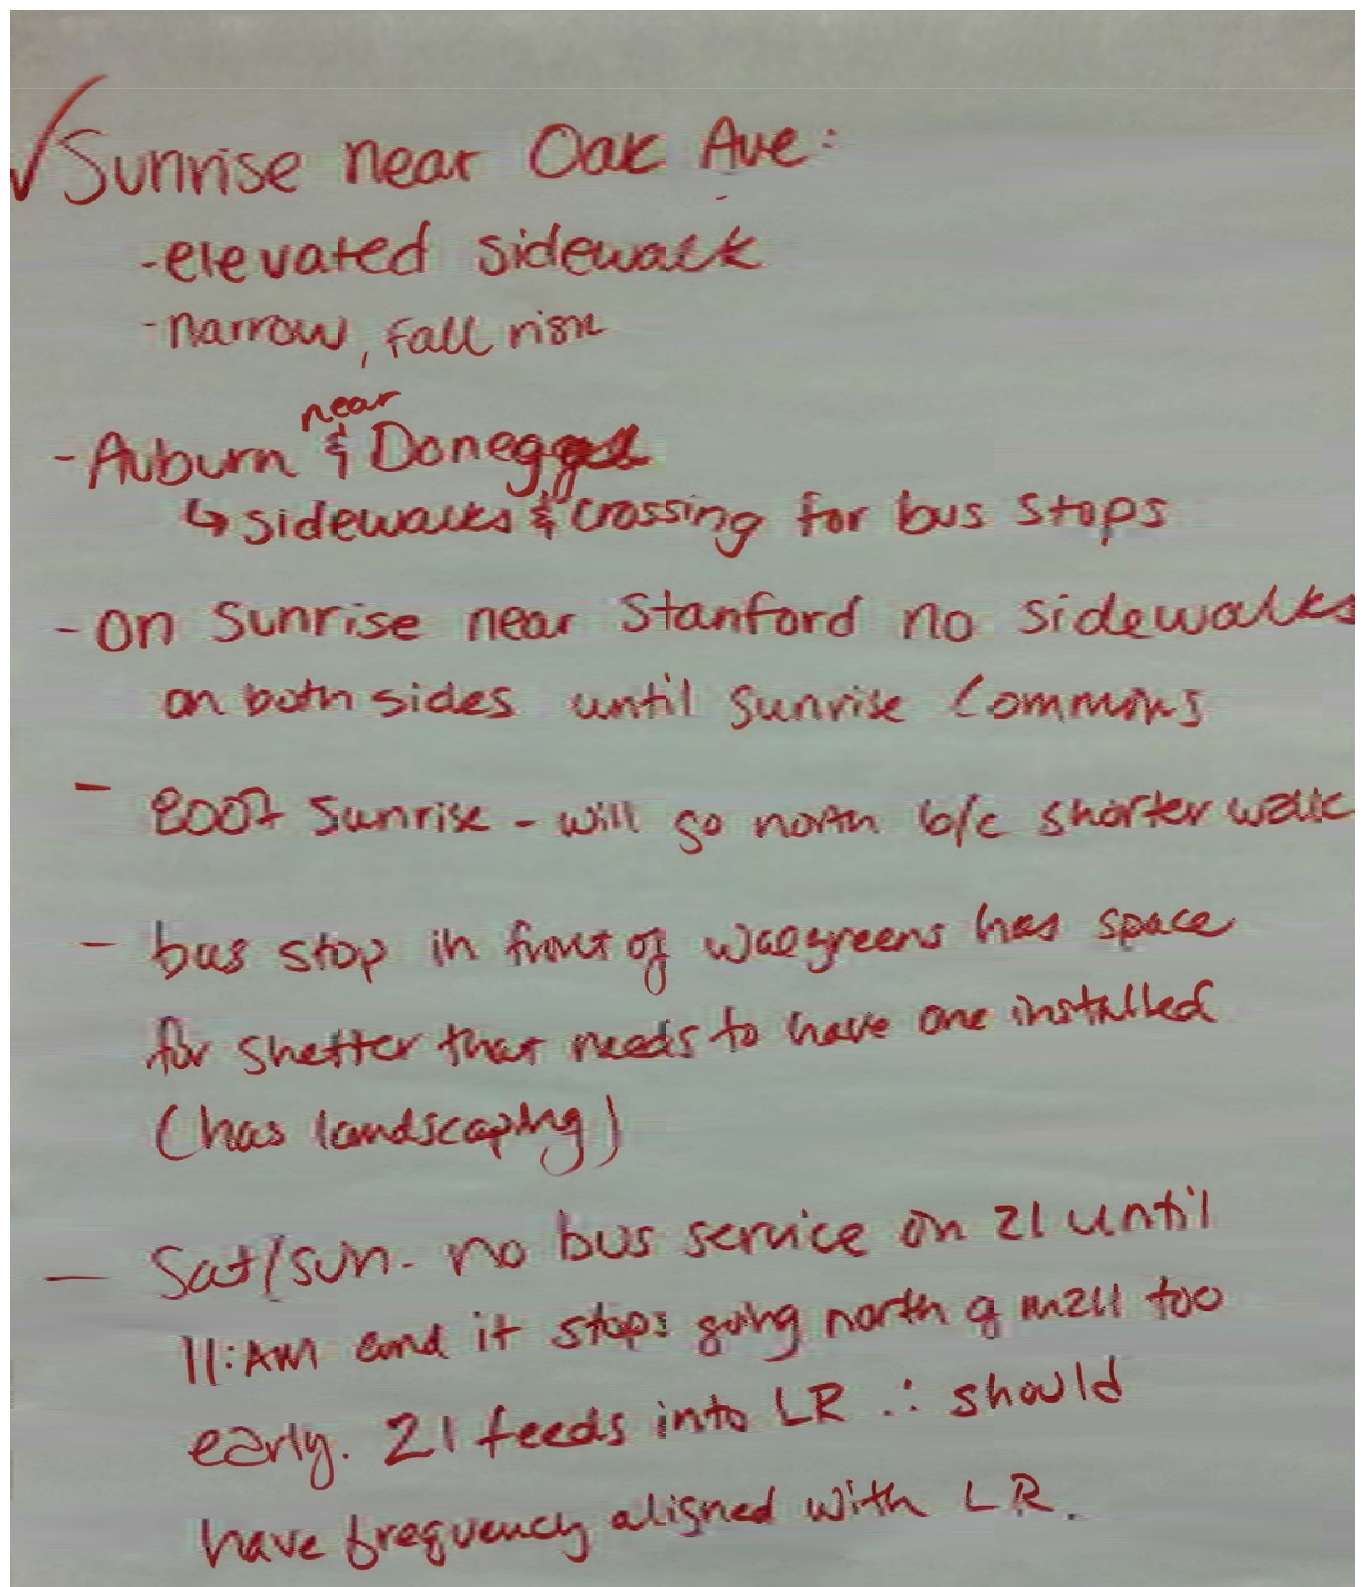 ✓ Sunrise near Oak Ave:
- elevated sidewalk
- narrow, fall risk
near
- Auburn &
↳ sidewalks & crossing for bus stops
- On Sunrise near Stanford no sidewalks
on both sides until Sunrise Commons
- Sunrise - will go north b/c shorter walk
- bus stop in front of walgreens has space
for shelter that needs to have one installed
(has landscaping)
- Sat/sun - no bus service on 21 until
11:AM and it stops going north of mall too
early. 21 feeds into LR ∴ should
have frequency aligned with LR.